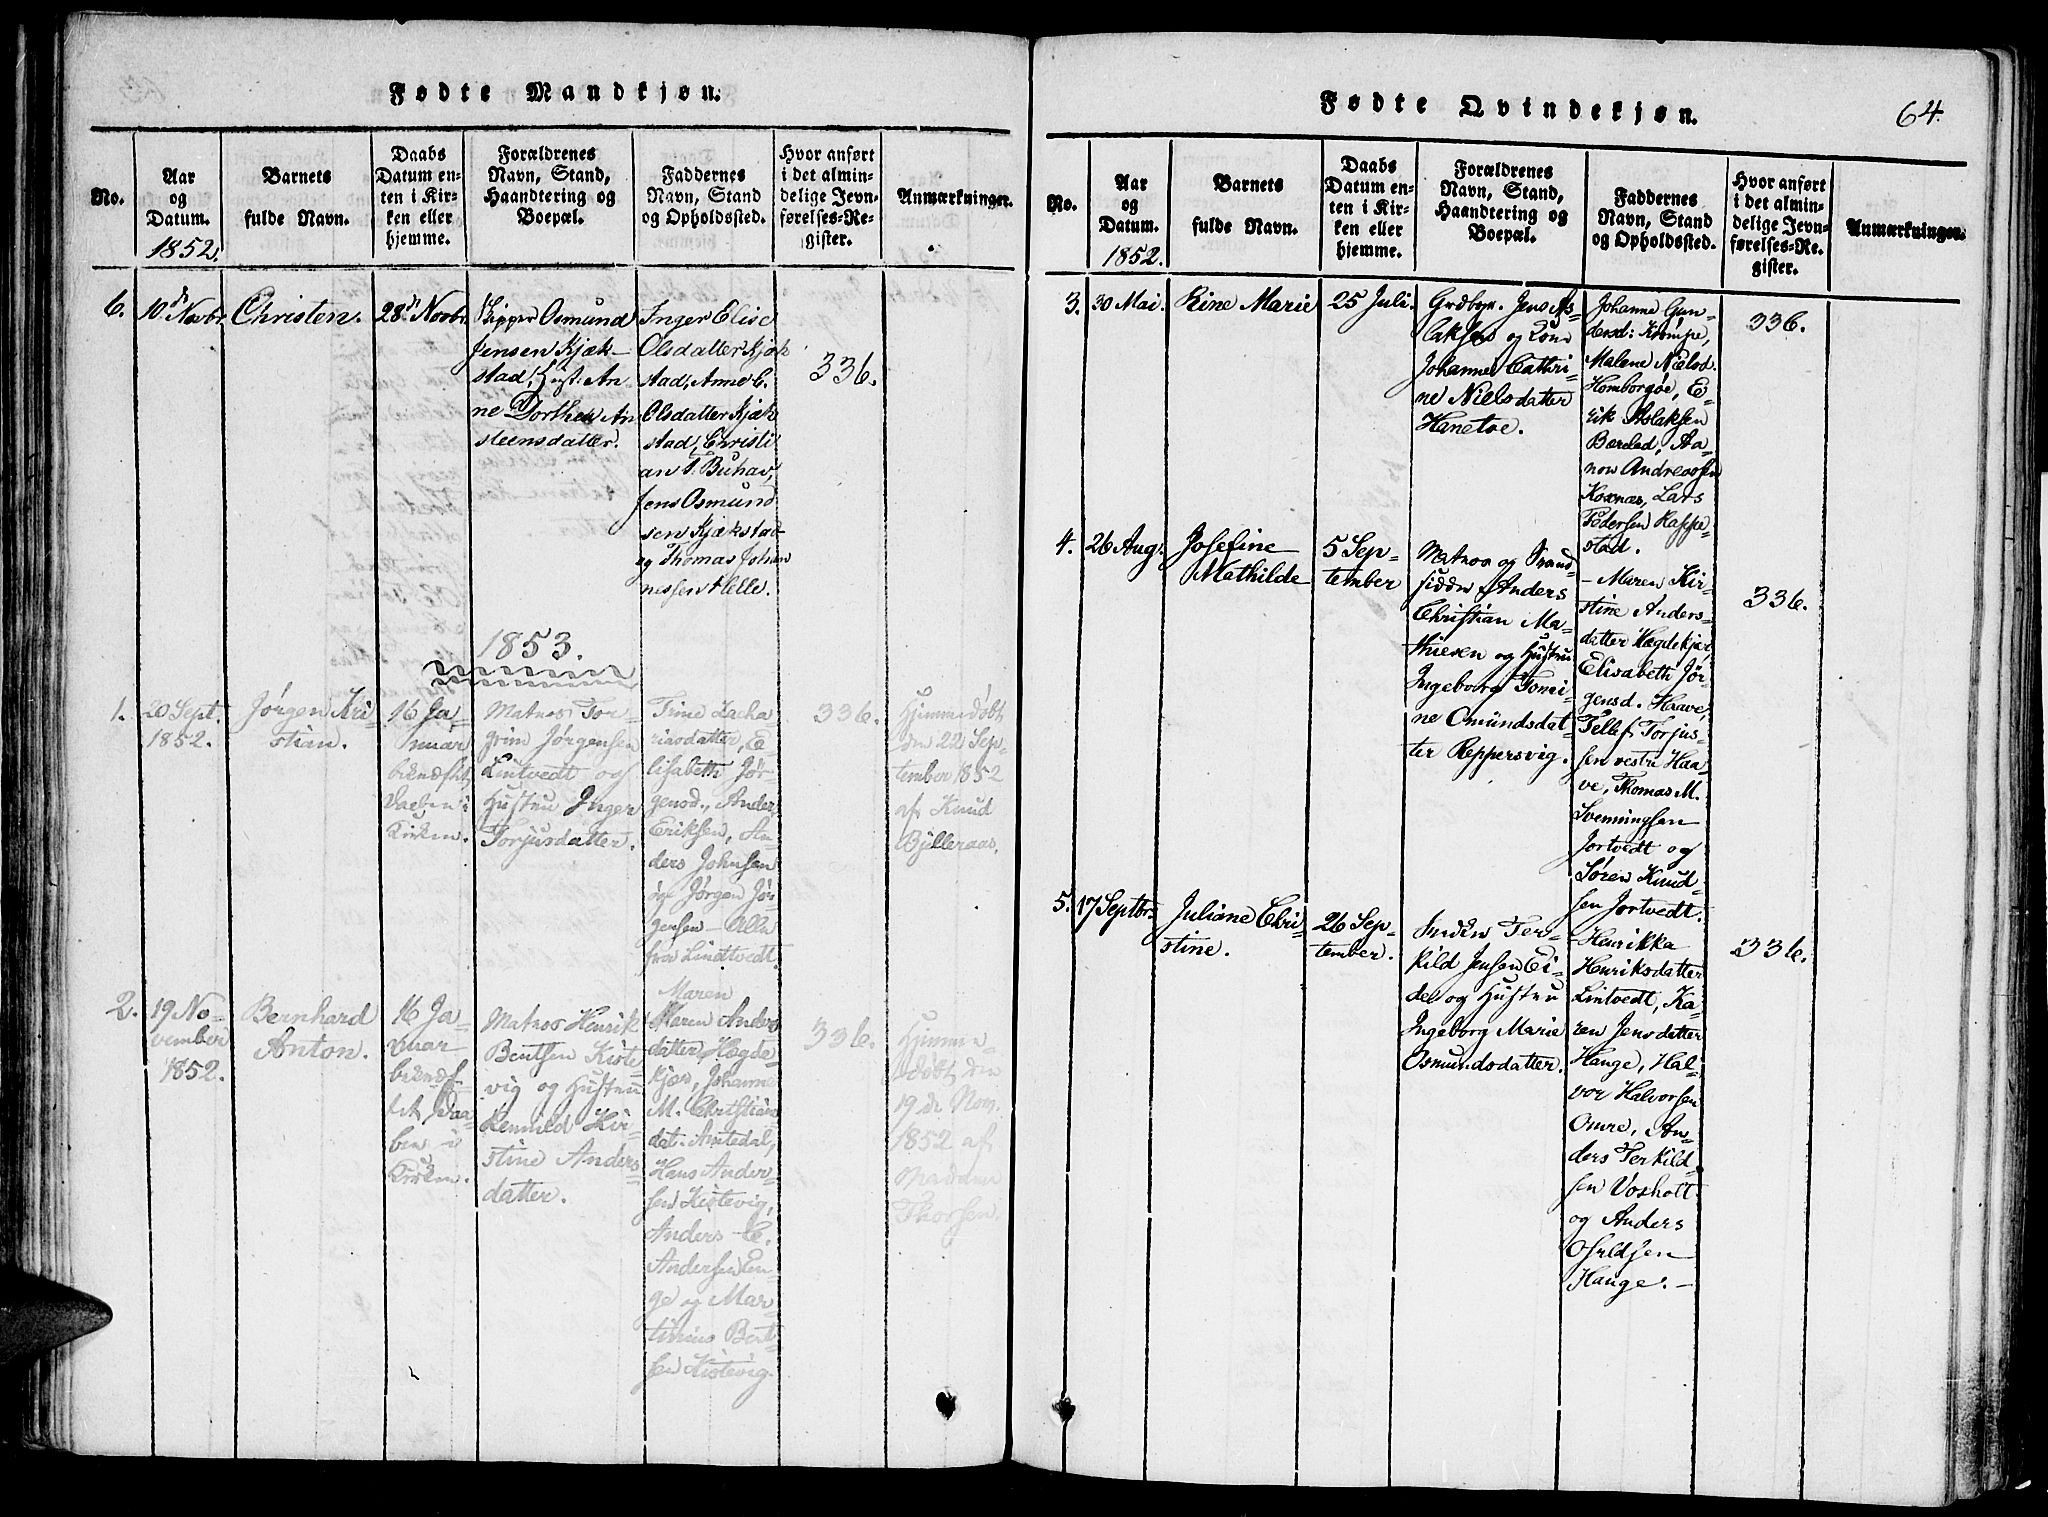 Fødte Mandkjøn.
No.
Aar
og
Datum.
1852.
Barnets
fulde Navn.
Daabs
Datum en-
ten i Kir-
ken eller
hjemme.
Forældrenes
Navn, Stand,
Haandtering og
Boepæl.
Faddernes
Navn, Stand
og Opholdssted.
Hvor anført
i det almin-
delige Jevn-
førelses-Re-
gister.
Anmærkninger.
6.
10de Novbr.
Christen.
28de Novbr.
Skipper Osmund
Jensen Kjæk-
stad, Hust: An-
ne Dorthea An
steensdatter.
Inger Elise
Olsdatter Kjæk
stad, Anne C.
Olsdatter Kjæk
stad, Christi
an T. Buhav,
Jens Osmund
sen Kjækstad
og Thomas Johan
nessen Helle.
336.
1853.
1.
20 Sept.
1852.
Jørgen Kri
stian.
16 Ja
nuar
bekræftet
Daaben i
Kirken.
Matros Tor
grim Jørgensen
Lintvedt og
Hustru Inger
Torjusdatter.
Trine Zacha
riasdatter, E-
lisabeth Jør
gensd., Anders
Eriksen, An-
ders Johnsen
og Jørgen Jør
gensen - Alle
fra Lindtvedt.
336.
Hjemmedøbt
den 22 Sep-
tember 1852
af Knud
Bjilleraas.
2.
19 No-
vember
1852.
Bernhard
Anton.
16 Ja-
nuar
bekræf-
tet Daa-
ben i
Kirken.
Matros Henrik
Bentsen Kiste-
vig og Hustru
Kennild Kir-
stine Anders
datter.
Maren
Maren Anders
datter Hægde
kjær, Johanne
M. Christian
dat: Amtedal,
Hans Ander-
sen Kistevig,
Anders C.
Andersen En-
ge og Mar-
tinius Bent
sen Kistevig.
336.
Hjemme-
døbt den
19de Nov.
1852 af
Madden
Thorsen.
Fødte Qvindekjøn.
64.
No.
Aar
og
Datum.
1852.
Barnets
fulde Navn.
Daabs
Datum en-
ten i Kir-
ken eller
hjemme.
Forældrenes
Navn, Stand,
Haandtering og
Boepæl.
Faddernes
Navn, Stand
og Opholdssted.
Hvor anført
i det almin-
delige Jevn-
førelses-Re-
gister.
Anmærkninger.
3.
30 Mai.
Kine Marie
25 Juli.
Grdbgr. Jens As-
laksen og Kone
Johanne Cathri-
ne Nielsdatter
Hanetoe.
Johanne Gun-
dersd: Krømpe,
Malene Nielsd.
Homborgøe, E-
rik Aslaksen
Bœrelad, Aa-
now Andreassen
Kornæs, Lars
Pedersen Kappe-
stad.
336.
4.
26 Aug.
Josefine
Mathilde
5 Sep-
tember
Matros og Strand
sidder Anders
Christian Ma-
thiesen og Hustru
Ingeborg Tomi-
ne Omundsdat-
ter Reppersvig.
- Maren Kir-
stine Anders-
datter Hægdekjær
Elisabeth Jør-
gensd. Haave,
Tellef Torjus-
sen vestre Haa-
ve, Thomas M.
Svenningsen
Jortvedt og
Søren Knud-
sen Jortvedt.
336.
5.
17 Septbr.
Juliane Chri-
stine.
26 Sep-
tember.
Inderst Ter-
kild Jensen Ei-
de og Hustru
Ingeborg Marie
Osmundsdatter.
- Henrikka
Henriksdatter
Lintvedt, Ka-
ren Jensdatter
Hauge, Hal-
vor Halvorsen
Omre, An-
ders Terkild-
sen Vosholt
og Anders
Osuldsen
Hauge. -
336.